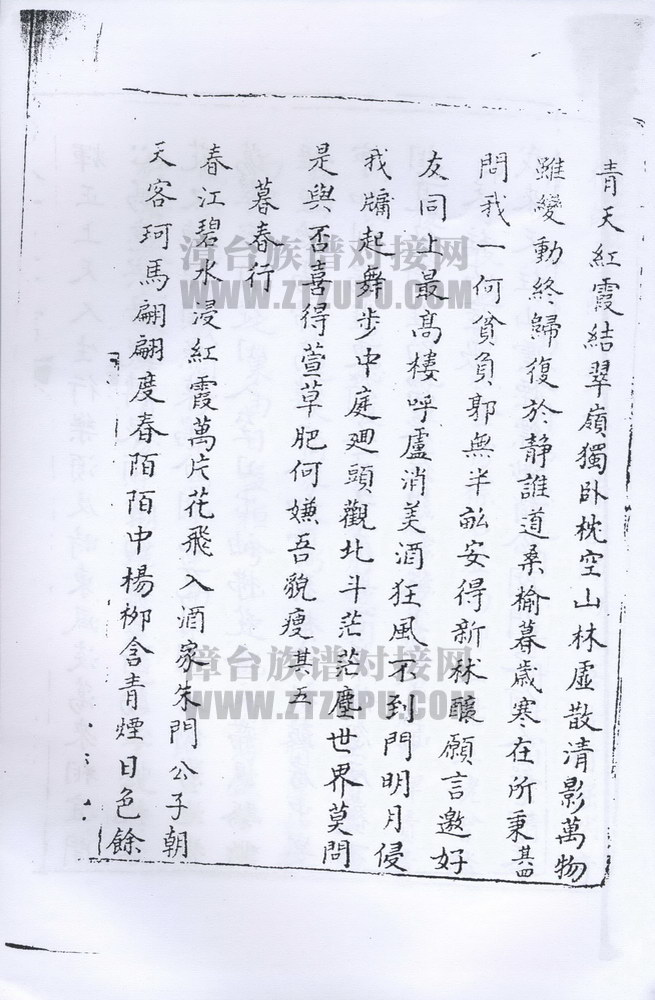 青天紅霞結翠嶺獨卧枕空山林虛散清影萬物
雖變動終歸復於靜誰道桑榆暮歲寒在所秉其四
問我一何貧負郭無半畝安得新林釀願言邀好
友同上最高樓呼盧消美酒狂風不到門明月侵
我牖起舞步中庭廻頭觀北斗茫茫塵世界莫問
是與否喜得萱草肥何嫌吾貌瘦其五
暮春行
春江碧水浸紅霞萬片花飛入酒家朱門公子朝
天客珂馬翩翩度春陌陌中楊柳含青煙日色餘
漳台族谱对接网
WWW.ZTZUPU.COM
漳台族谱对接网
WWW.ZTZUPU.COM